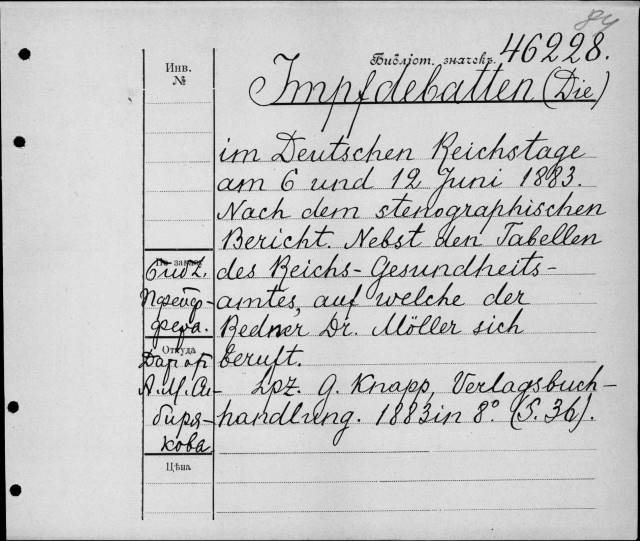 84
Библіот. значекъ. 46228.
Инв.
№
Impfdebatten (Die)
im Deutschen Reichstage
am 6 und 12 Juni 1883.
Nach dem stenographischen
Bericht. Nebst den Tabellen
des Reichs-Gesundheits-
amtes, auf welche der
Redner Dr. Möller sich
beruft.
Lpz. G. Knapp, Verlagsbuch-
handlung. 1883 in 8° (S. 36).
Библ.
Пфейф-
фера.
Откуда
Дар от
А. М. Си-
биря-
кова
Цѣна